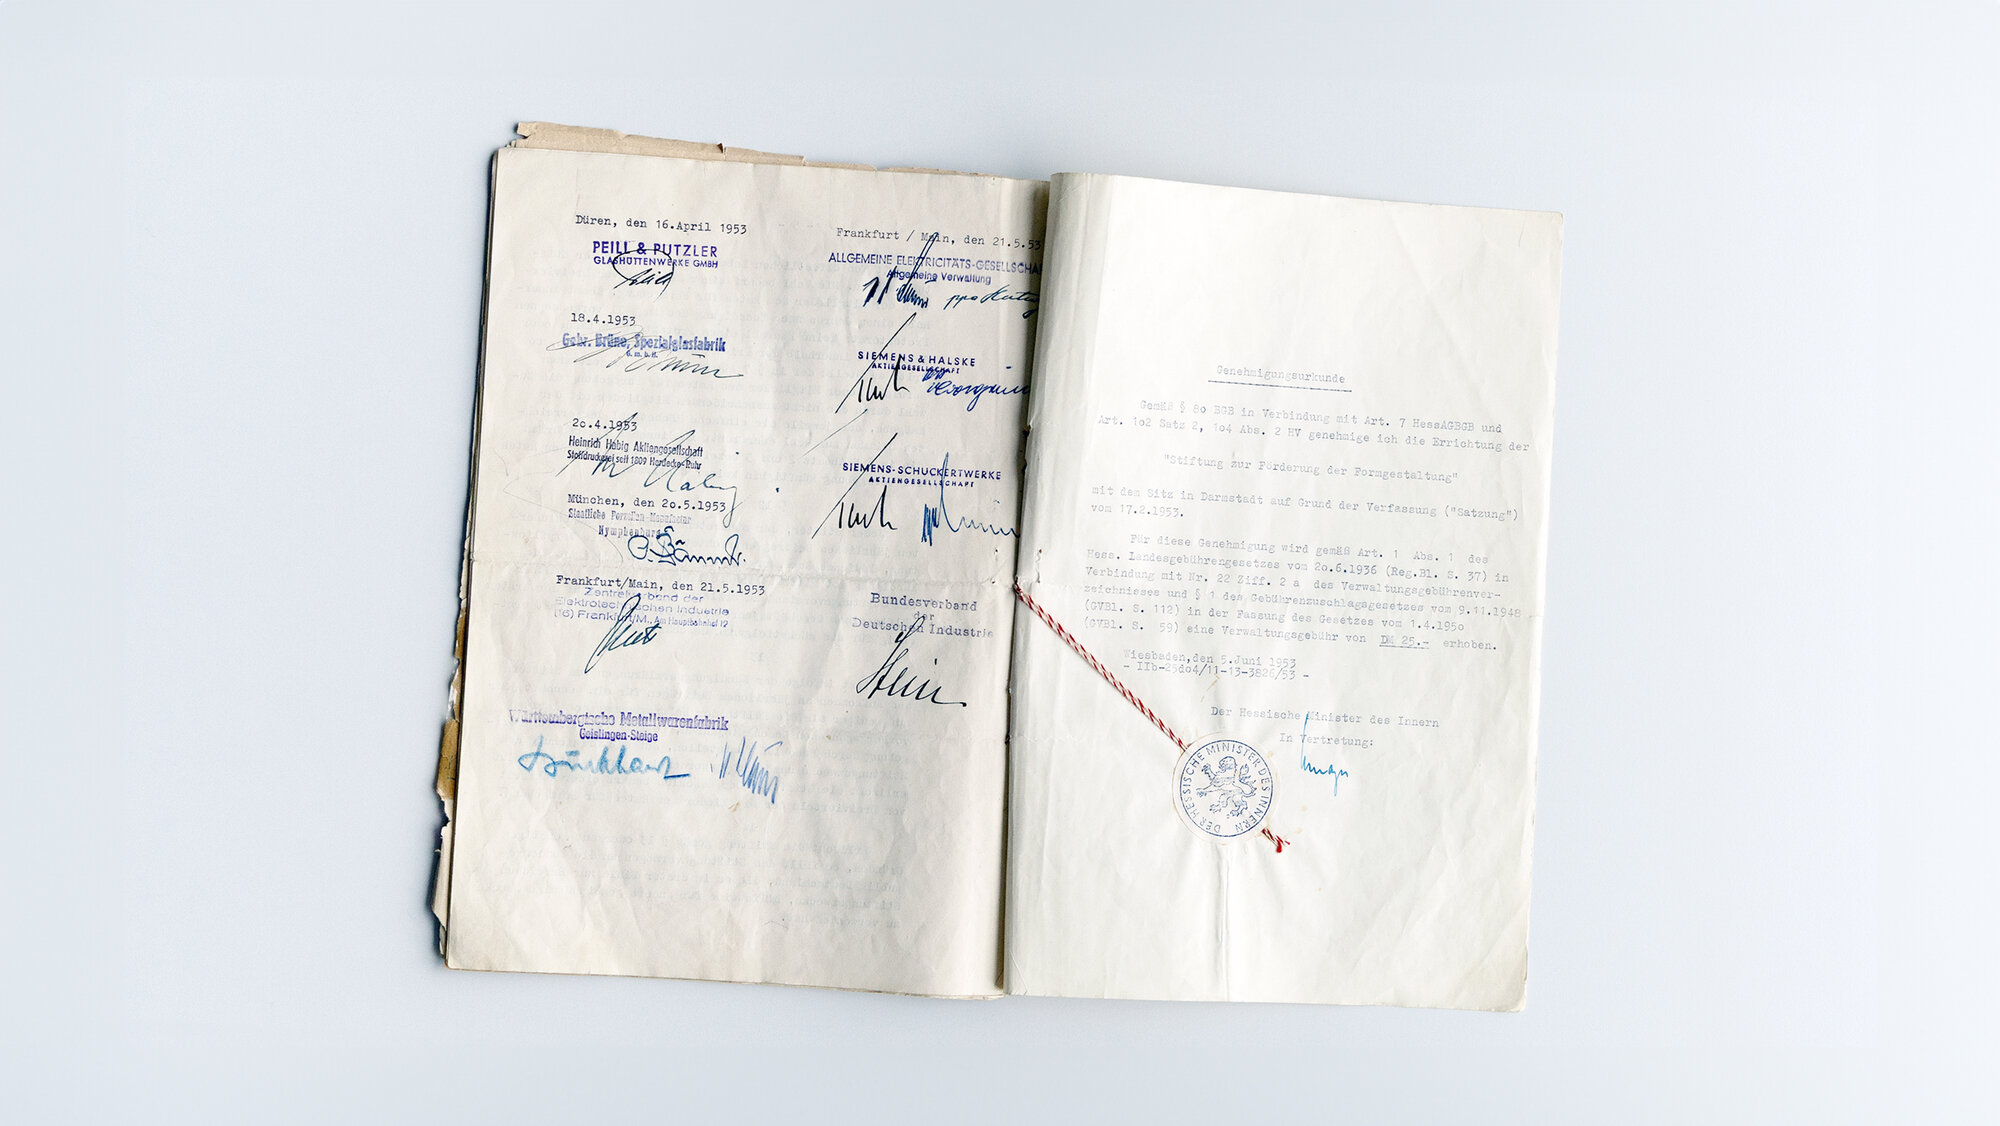 Düren, den 16.April 1953
PEILL & PUTZLER
GLASHÜTTENWERKE GMBH
18.4.1953
Gebr. Brüne, Spezialglasfabrik
G.m.b.H.
2o.4.1953
Heinrich Habig Aktiengesellschaft
Stoffdruckerei seit 1809 Herdecke-Ruhr
München, den 2o.5.1953
Staatliche Porzellan-Manufactur
Nymphenburg
Frankfurt/Main, den 21.5.1953
Zentralverband der
Elektrotechnischen Industrie
(16) Frankfurt/M., Am Hauptbahnhof 12
Württembergische Metallwarenfabrik
Geislingen-Steige
Burkhardt
Frankfurt / Main, den 21.5.53
ALLGEMEINE ELEKTRICITÄTS-GESELLSCHA
Allgemeine Verwaltung
ppa
SIEMENS & HALSKE
AKTIENGESELLSCHAFT
SIEMENS-SCHUCKERTWERKE
AKTIENGESELLSCHAFT
Bundesverband
der
Deutschen Industrie
Stein
Genehmigungsurkunde
Gemäß § 8o BGB in Verbindung mit Art. 7 HessAGBGB und
Art. 1o2 Satz 2, 1o4 Abs. 2 HV genehmige ich die Errichtung der
"Stiftung zur Förderung der Formgestaltung"
mit dem Sitz in Darmstadt auf Grund der Verfassung ("Satzung")
vom 17.2.1953.
Für diese Genehmigung wird gemäß Art. 1 Abs. 1 des
Hess. Landesgebührengesetzes vom 2o.6.1936 (Reg.Bl. S. 37) in
Verbindung mit Nr. 22 Ziff. 2 a des Verwaltungsgebührenver-
zeichnisses und § 1 des Gebührenzuschlagsgesetzes vom 9.11.1948
(GVBl. S. 112) in der Fassung des Gesetzes vom 1.4.195o
(GVBl. S. 59) eine Verwaltungsgebühr von DM 25.- erhoben.
Wiesbaden,den 5.Juni 1953
- IIb-25do4/11-13-3826/53 -
Der Hessische Minister des Innern
In Vertretung:
DER HESSISCHE MINISTER DES INNERN